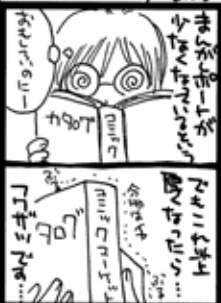 まんがレポートが
少なくなっているという
おもしろいのにー
カタログ
コミック
でもこれ以上
厚くなったら…
今でさえ
コミックマーケット
タログ
ぷる
フクザツです…